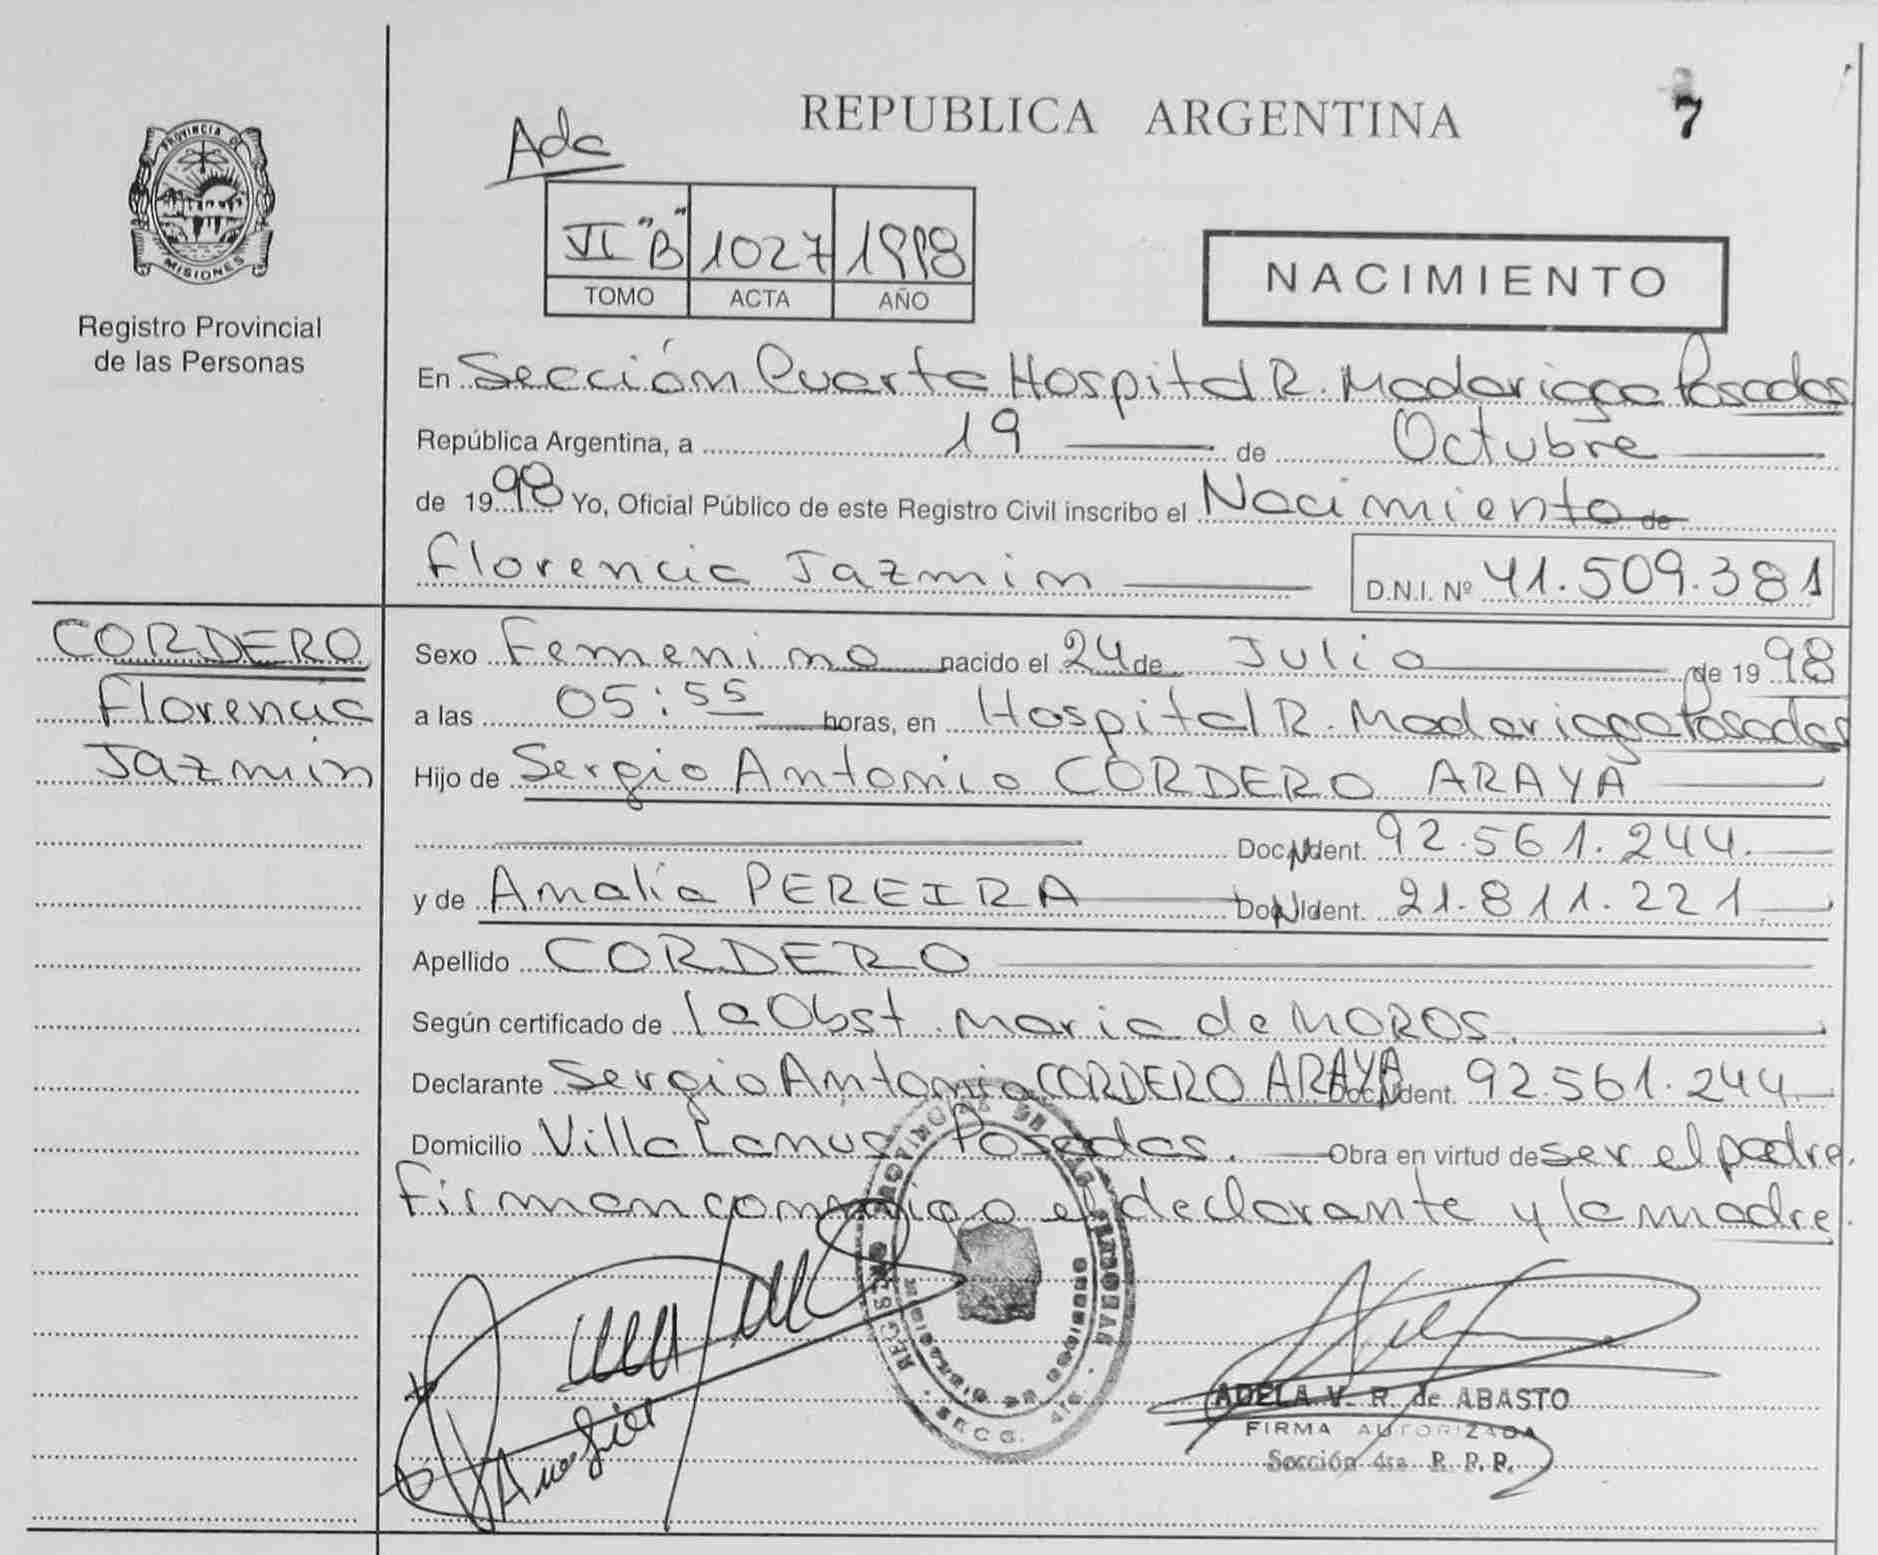 REPUBLICA ARGENTINA
7
Ada
PROVINCIA D
MISIONES
Registro Provincial
de las Personas
VI "B" 1027 1998
TOMO ACTA AÑO
NACIMIENTO
En Sección Cuarta Hospital R. Madariaga Posadas
República Argentina, a 19 de Octubre
de 1998 Yo, Oficial Público de este Registro Civil inscribo el Nacimiento de
Florencia Jazmin D.N.I. Nº 41.509.381
CORDERO
Florencia
Jazmin
Sexo Femenino nacido el 24 de Julio de 1998
a las 05:55 horas, en Hospital R. Madariaga Posadas
Hijo de Sergio Antonio CORDERO ARAYA
Doc. Ident. 92.561.244.
y de Amalia PEREIRA Doc. Ident. 21.811.221
Apellido CORDERO
Según certificado de la Obst. Maria de MOROS.
Declarante Sergio Antonio CORDERO ARAYA Doc. Ident. 92.561.244
Domicilio Villa Lanus Posadas. Obra en virtud de ser el padre.
Firman conmigo el declarante y la madre.
ADELA V. R. de ABASTO
FIRMA AUTORIZADA
Sección 4ta. R. P. P.